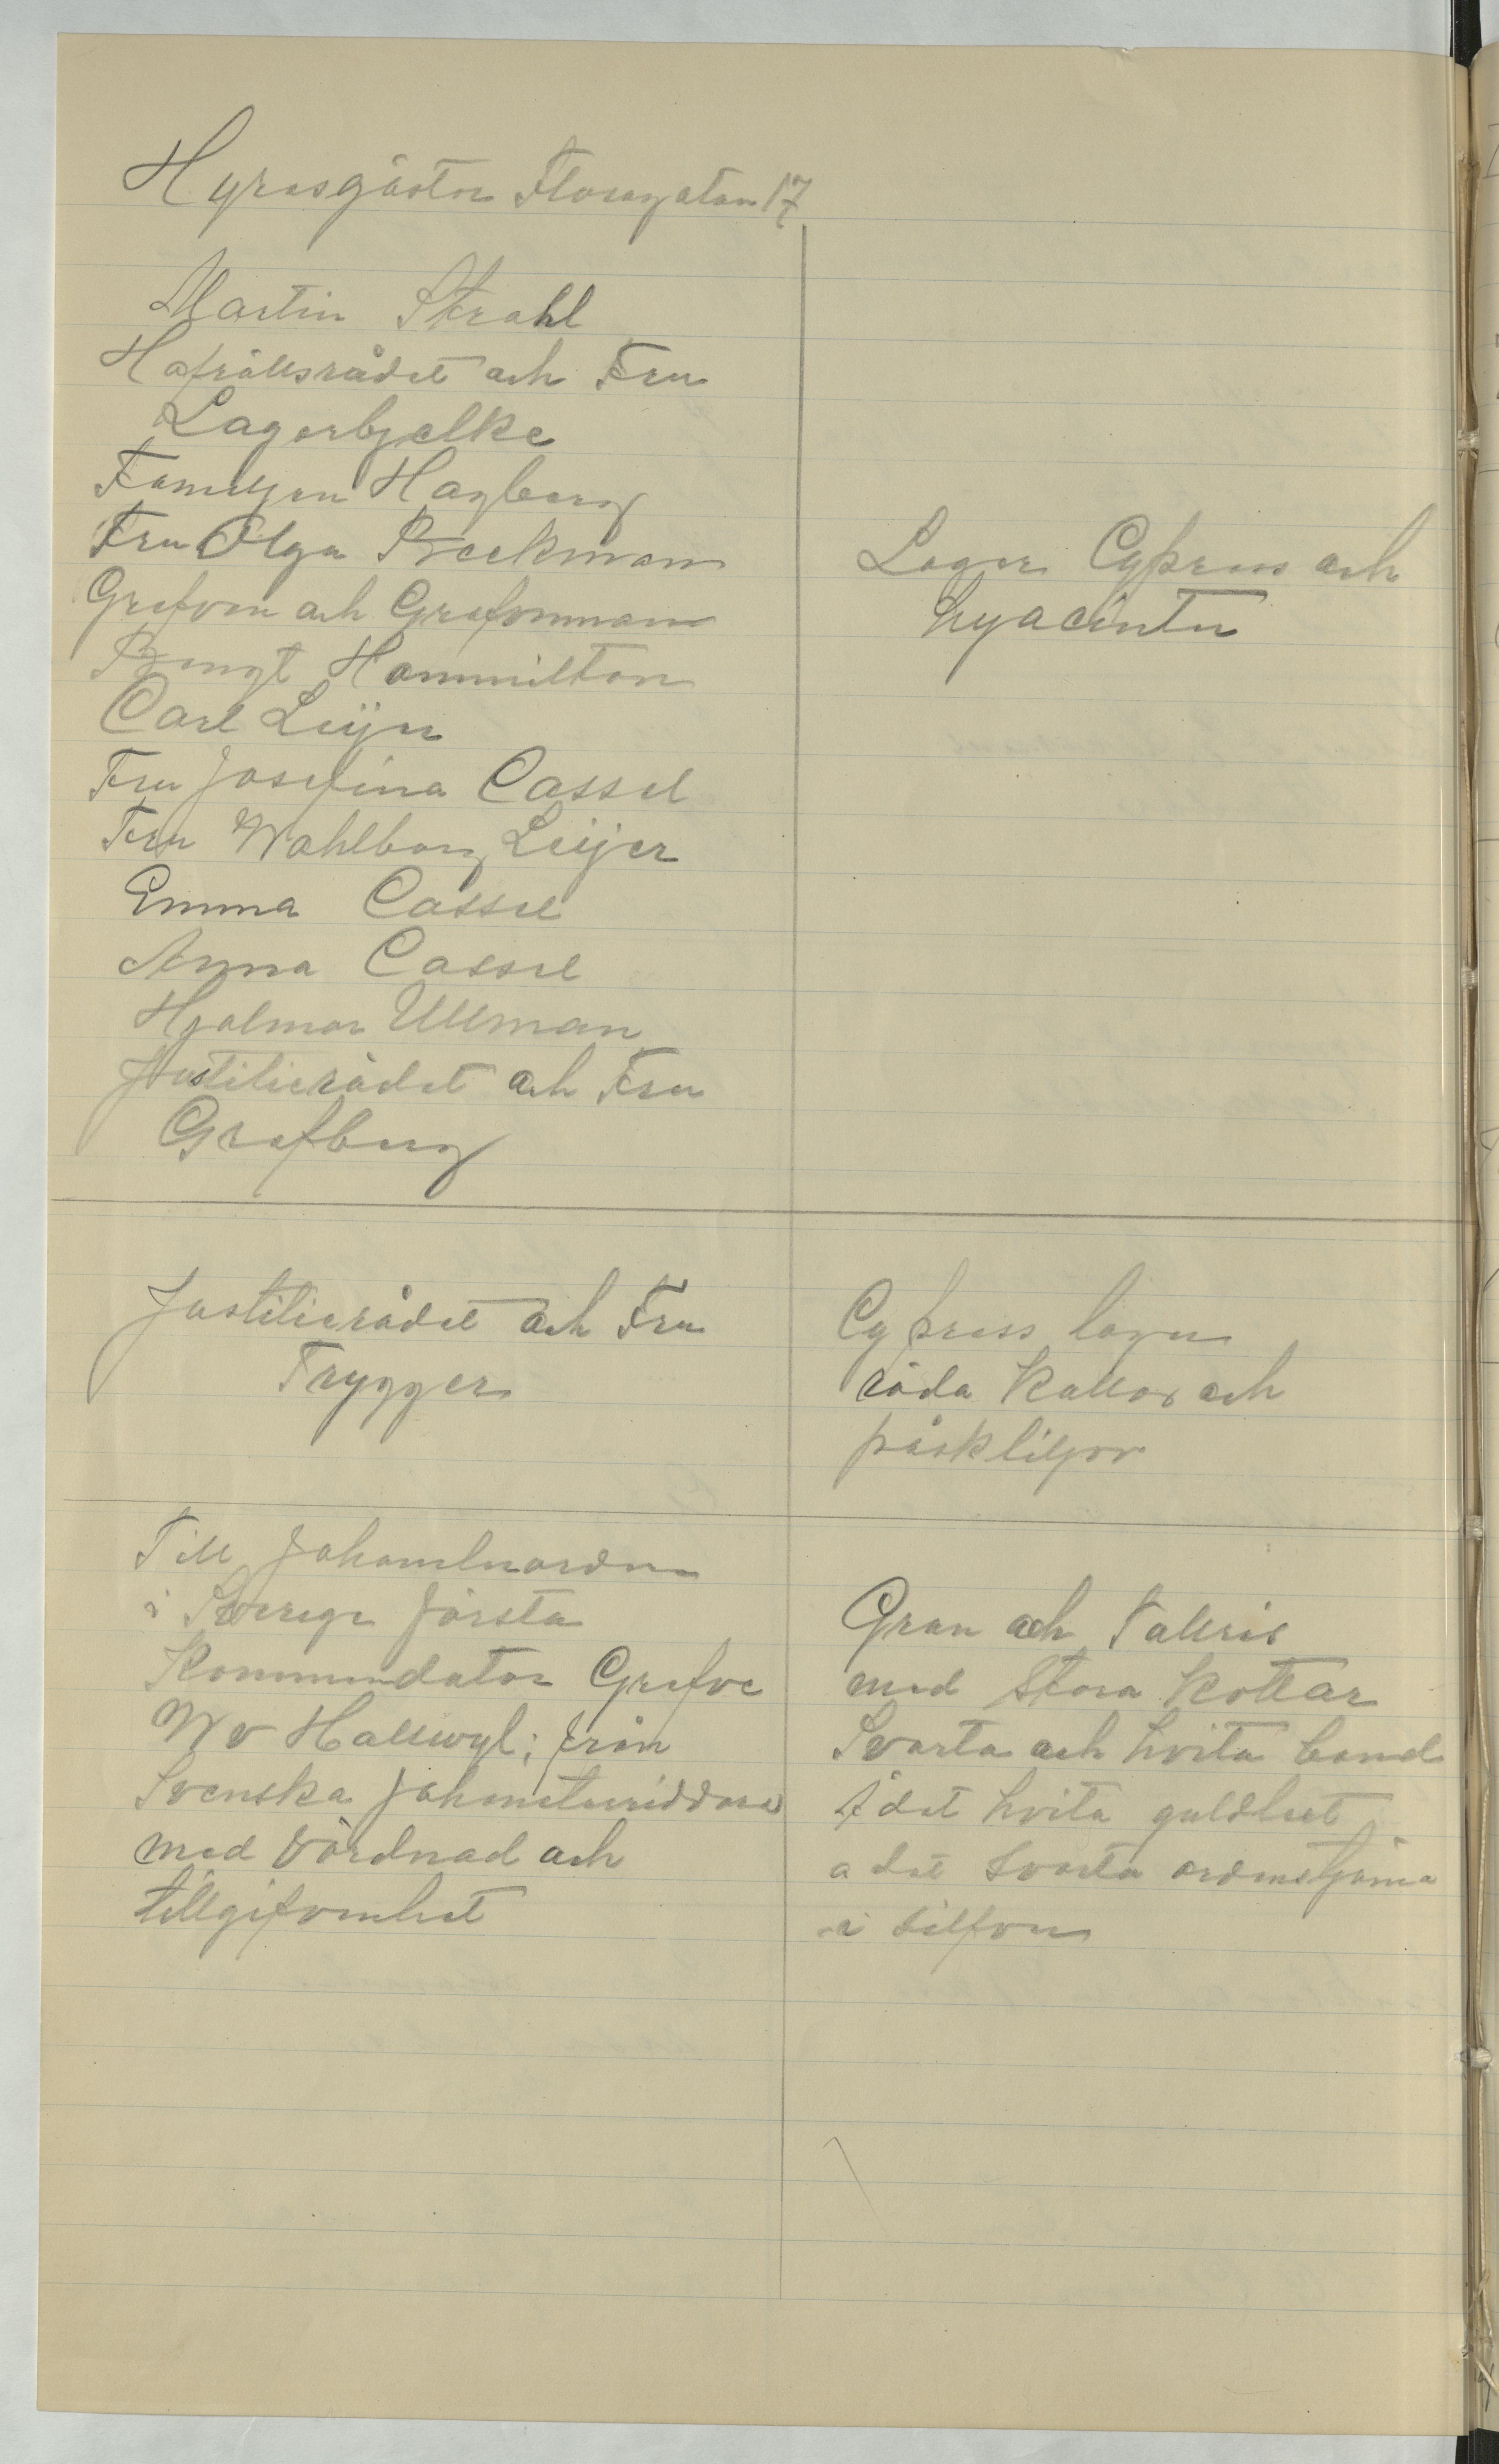 Hyresgäster Floragatan 17
Martin Strahl
Hofrättsrådet och Fru
Lagerbjelke
Familjen Hagberg
Fru Olga Beckman
Grefven och Grefvinnan
Bengt Hammilton
Carl Leijer
Fru Josefina Cassel
Fru Wahlborg Leijer
Emma Cassel
Anna Cassel
Hjalmar Ullman
Justitierådet och Fru
Grefberg
Lager Cypress och
hyacinter
Justitierådet och Fru
Trygger
Cypress lager
röda Kallor och
påskliljor
Till Johanniterorden
i Sverige första
Kommendator Grefve
W v Hallwyl; från
Svenska Johanniterriddare
med vördnad och
tillgifvenhet
Gran och Tallris
med stora kottar
Svarta och hvita band
Å det hvita guldtext
a det svarta ordenstjerna
i silfver